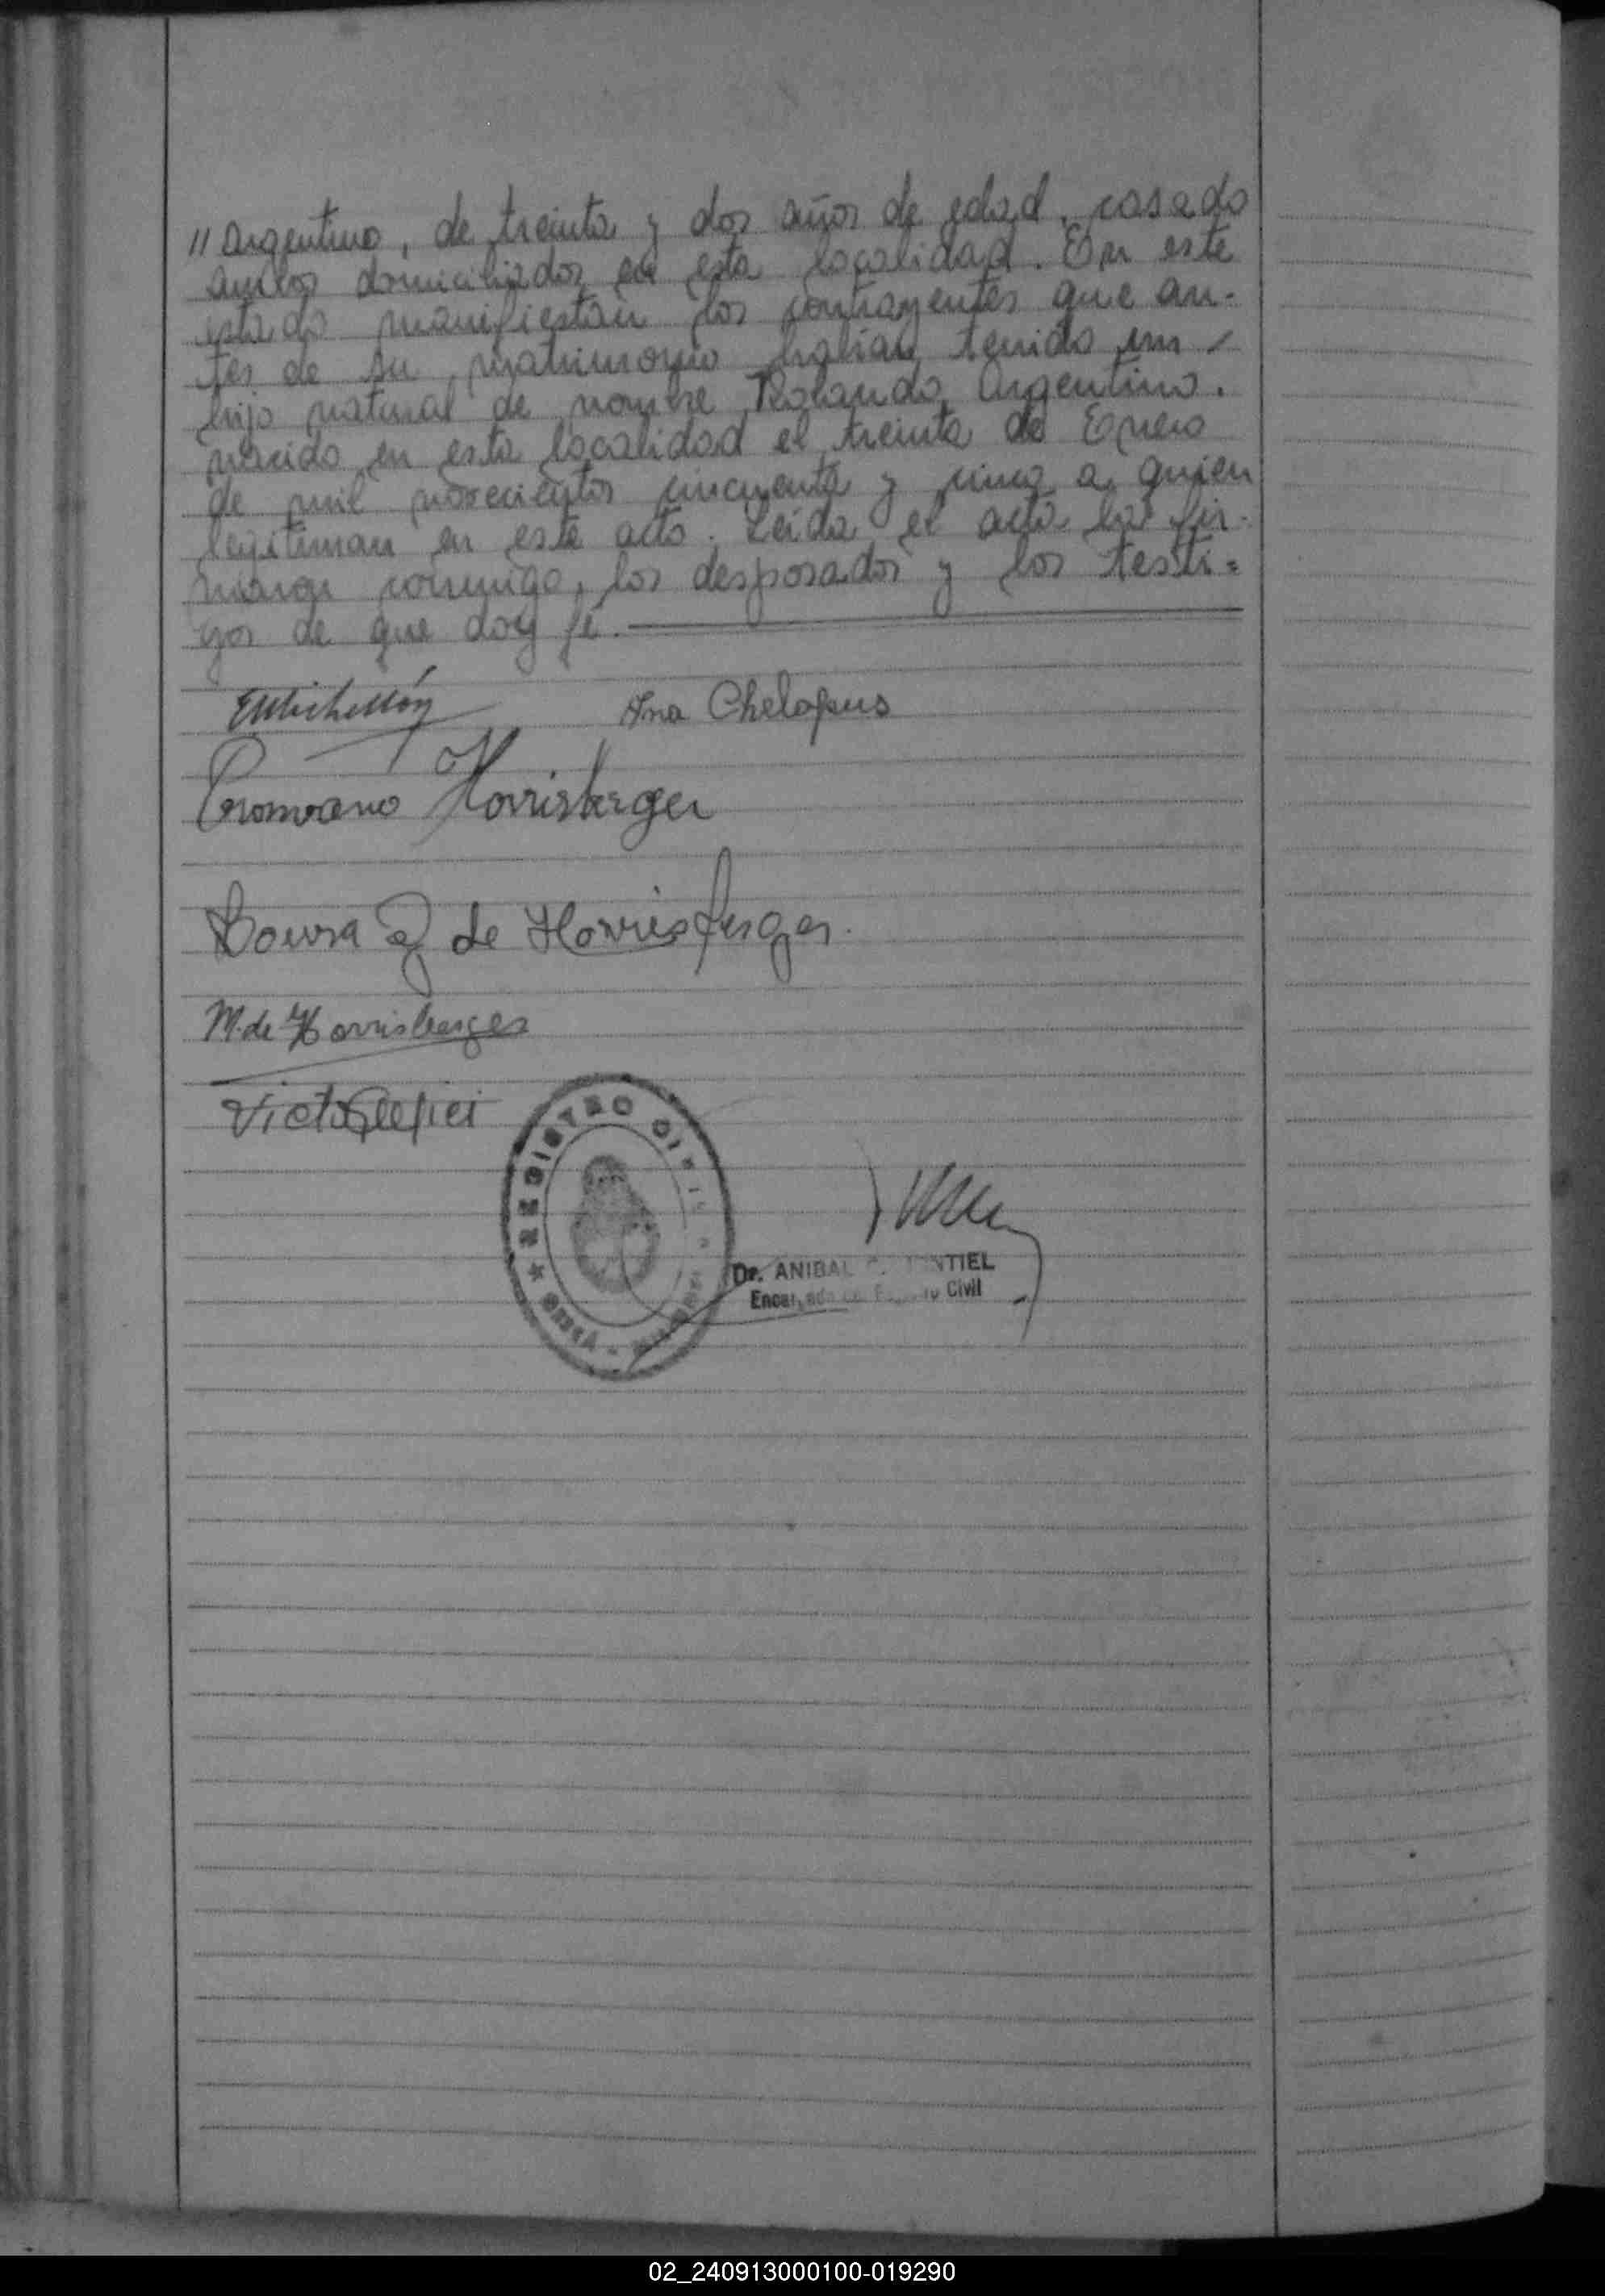 // Argentino, de treinta y dos años de edad, casado
ambos domiciliados en esta localidad. En este
estado manifiestan los contrayentes que an-
tes de su matrimonio habían tenido un
hijo natural de nombre Rolando Argentino.
nacido en esta localidad el treinta de Enero
de mil novecientos cincuenta y cinco a quien
legitiman en este acto. Leída el acta la fir-
maron conmigo, los desposados y los testi=
gos de que doy fé.
Ana Chelapus
Horrisberger
de Horrisberger.
M. de Horrisberger
REGISTRO CIVIL
Dr. ANIBAL NTIEL
Civil
02_240913000100-019290